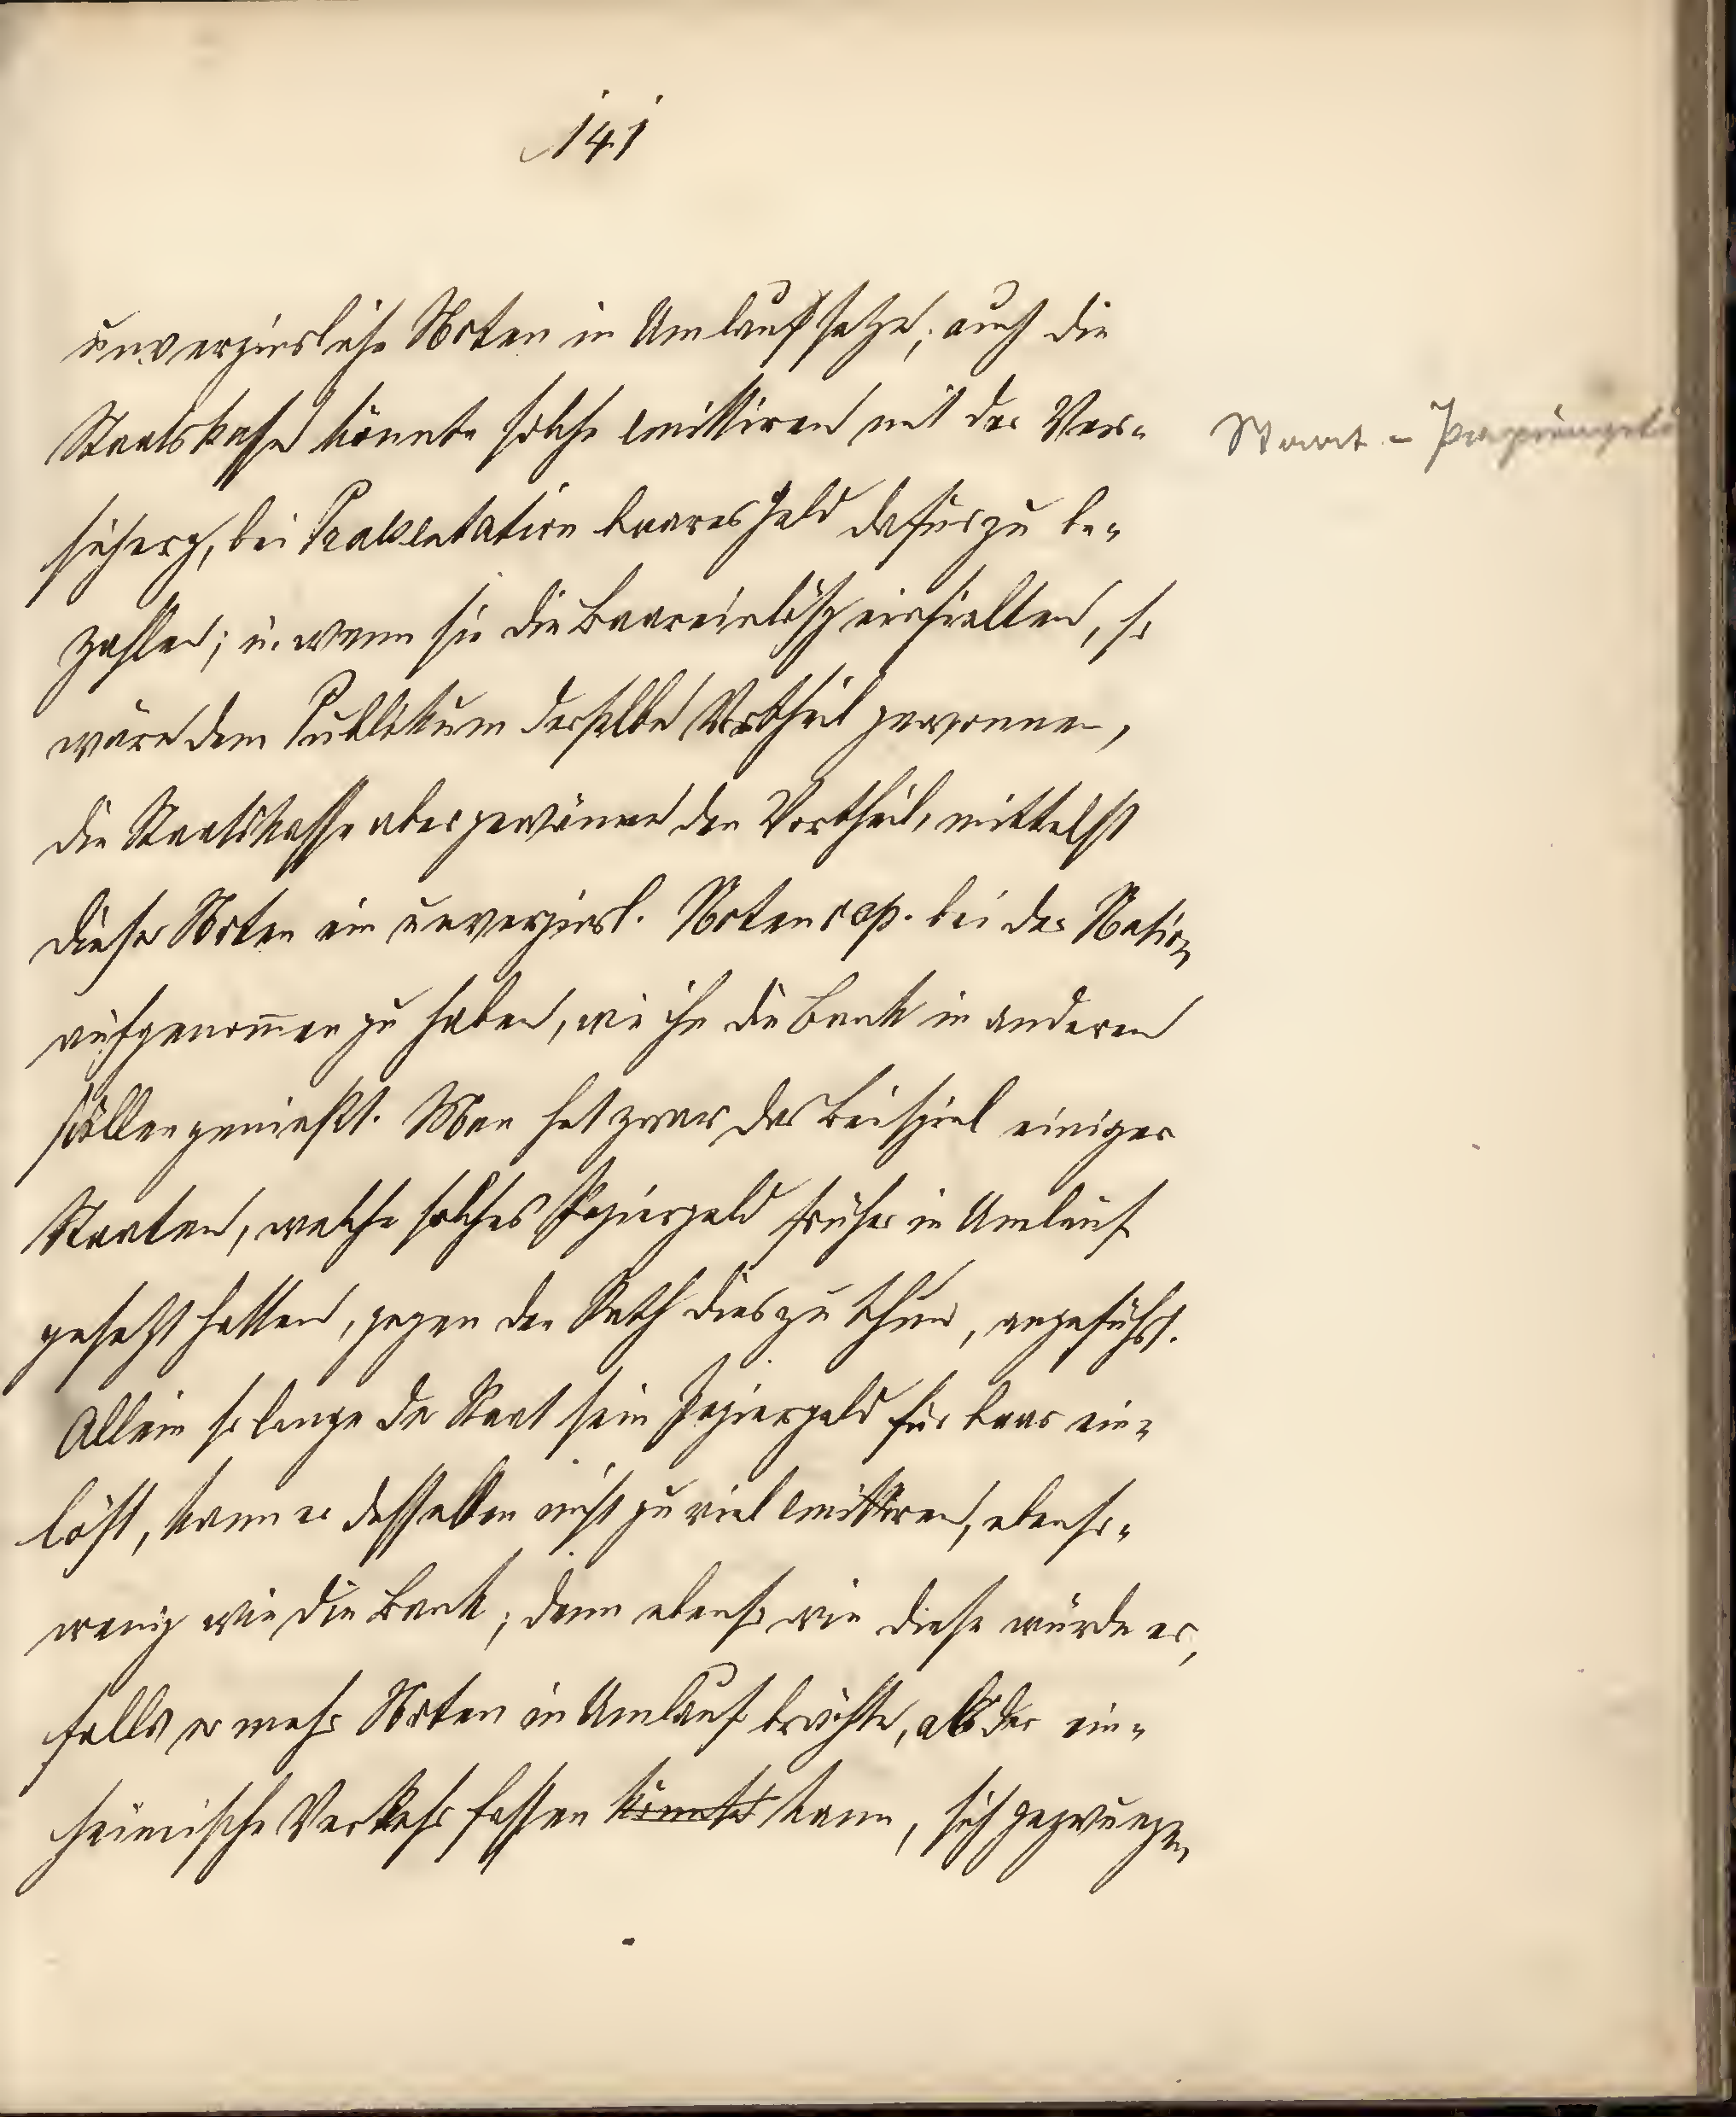 141
unverzinsliche Noten in Umlauf setze; auch die
Staatskasse könnte solche emittiren mit der Ver-
sicherg, bei Praesentation baares Geld dafür zu be-
zahlen; u. wenn sie die Baareinlösg einhielten, so
wäre dem Publikum derselbe Vortheil gewonnen,
die Staatskasse aber gewänne den Vortheil, mittelst
dieser Noten ein unverzinsl. Notencap. bei der Nation
aufgenom̄en zu haben, wie ihn die Bank in anderen
Fällen genießt. Man hat zwar das Beispiel einiger
Staaten, welche solches Papiergeld früher in Umlauf
gesetzt hatten, gegen den Rath dies zu thun, angeführt.
Allein so lange der Staat sein Papiergeld für baar ein-
löst, kann er desselben nicht zu viel emittiren, ebenso-
wenig wie die Bank; denn ebenso wie diese würde er,
falls er mehr Noten in Umlauf brächte, als der ein-
heimische Verkehr fassen könnte kann, sich gezwungen
Staat - Papiergeld